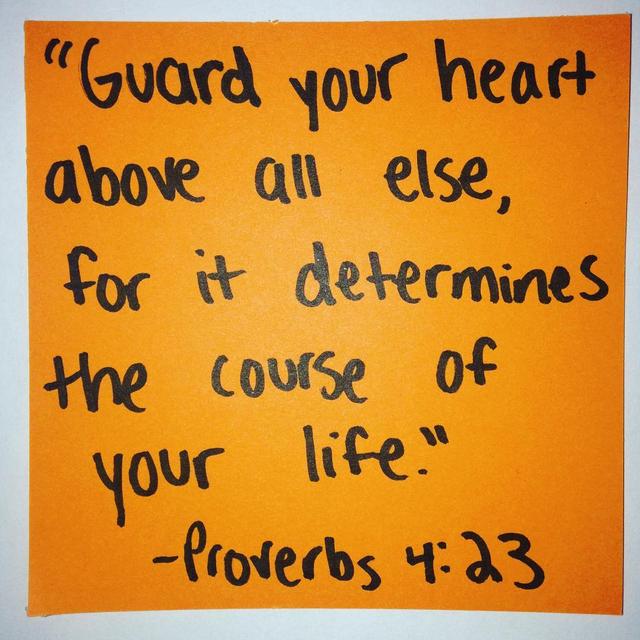 "Guard your heart
above all else,
for it determines
the course of
your life."
-Proverbs 4:23